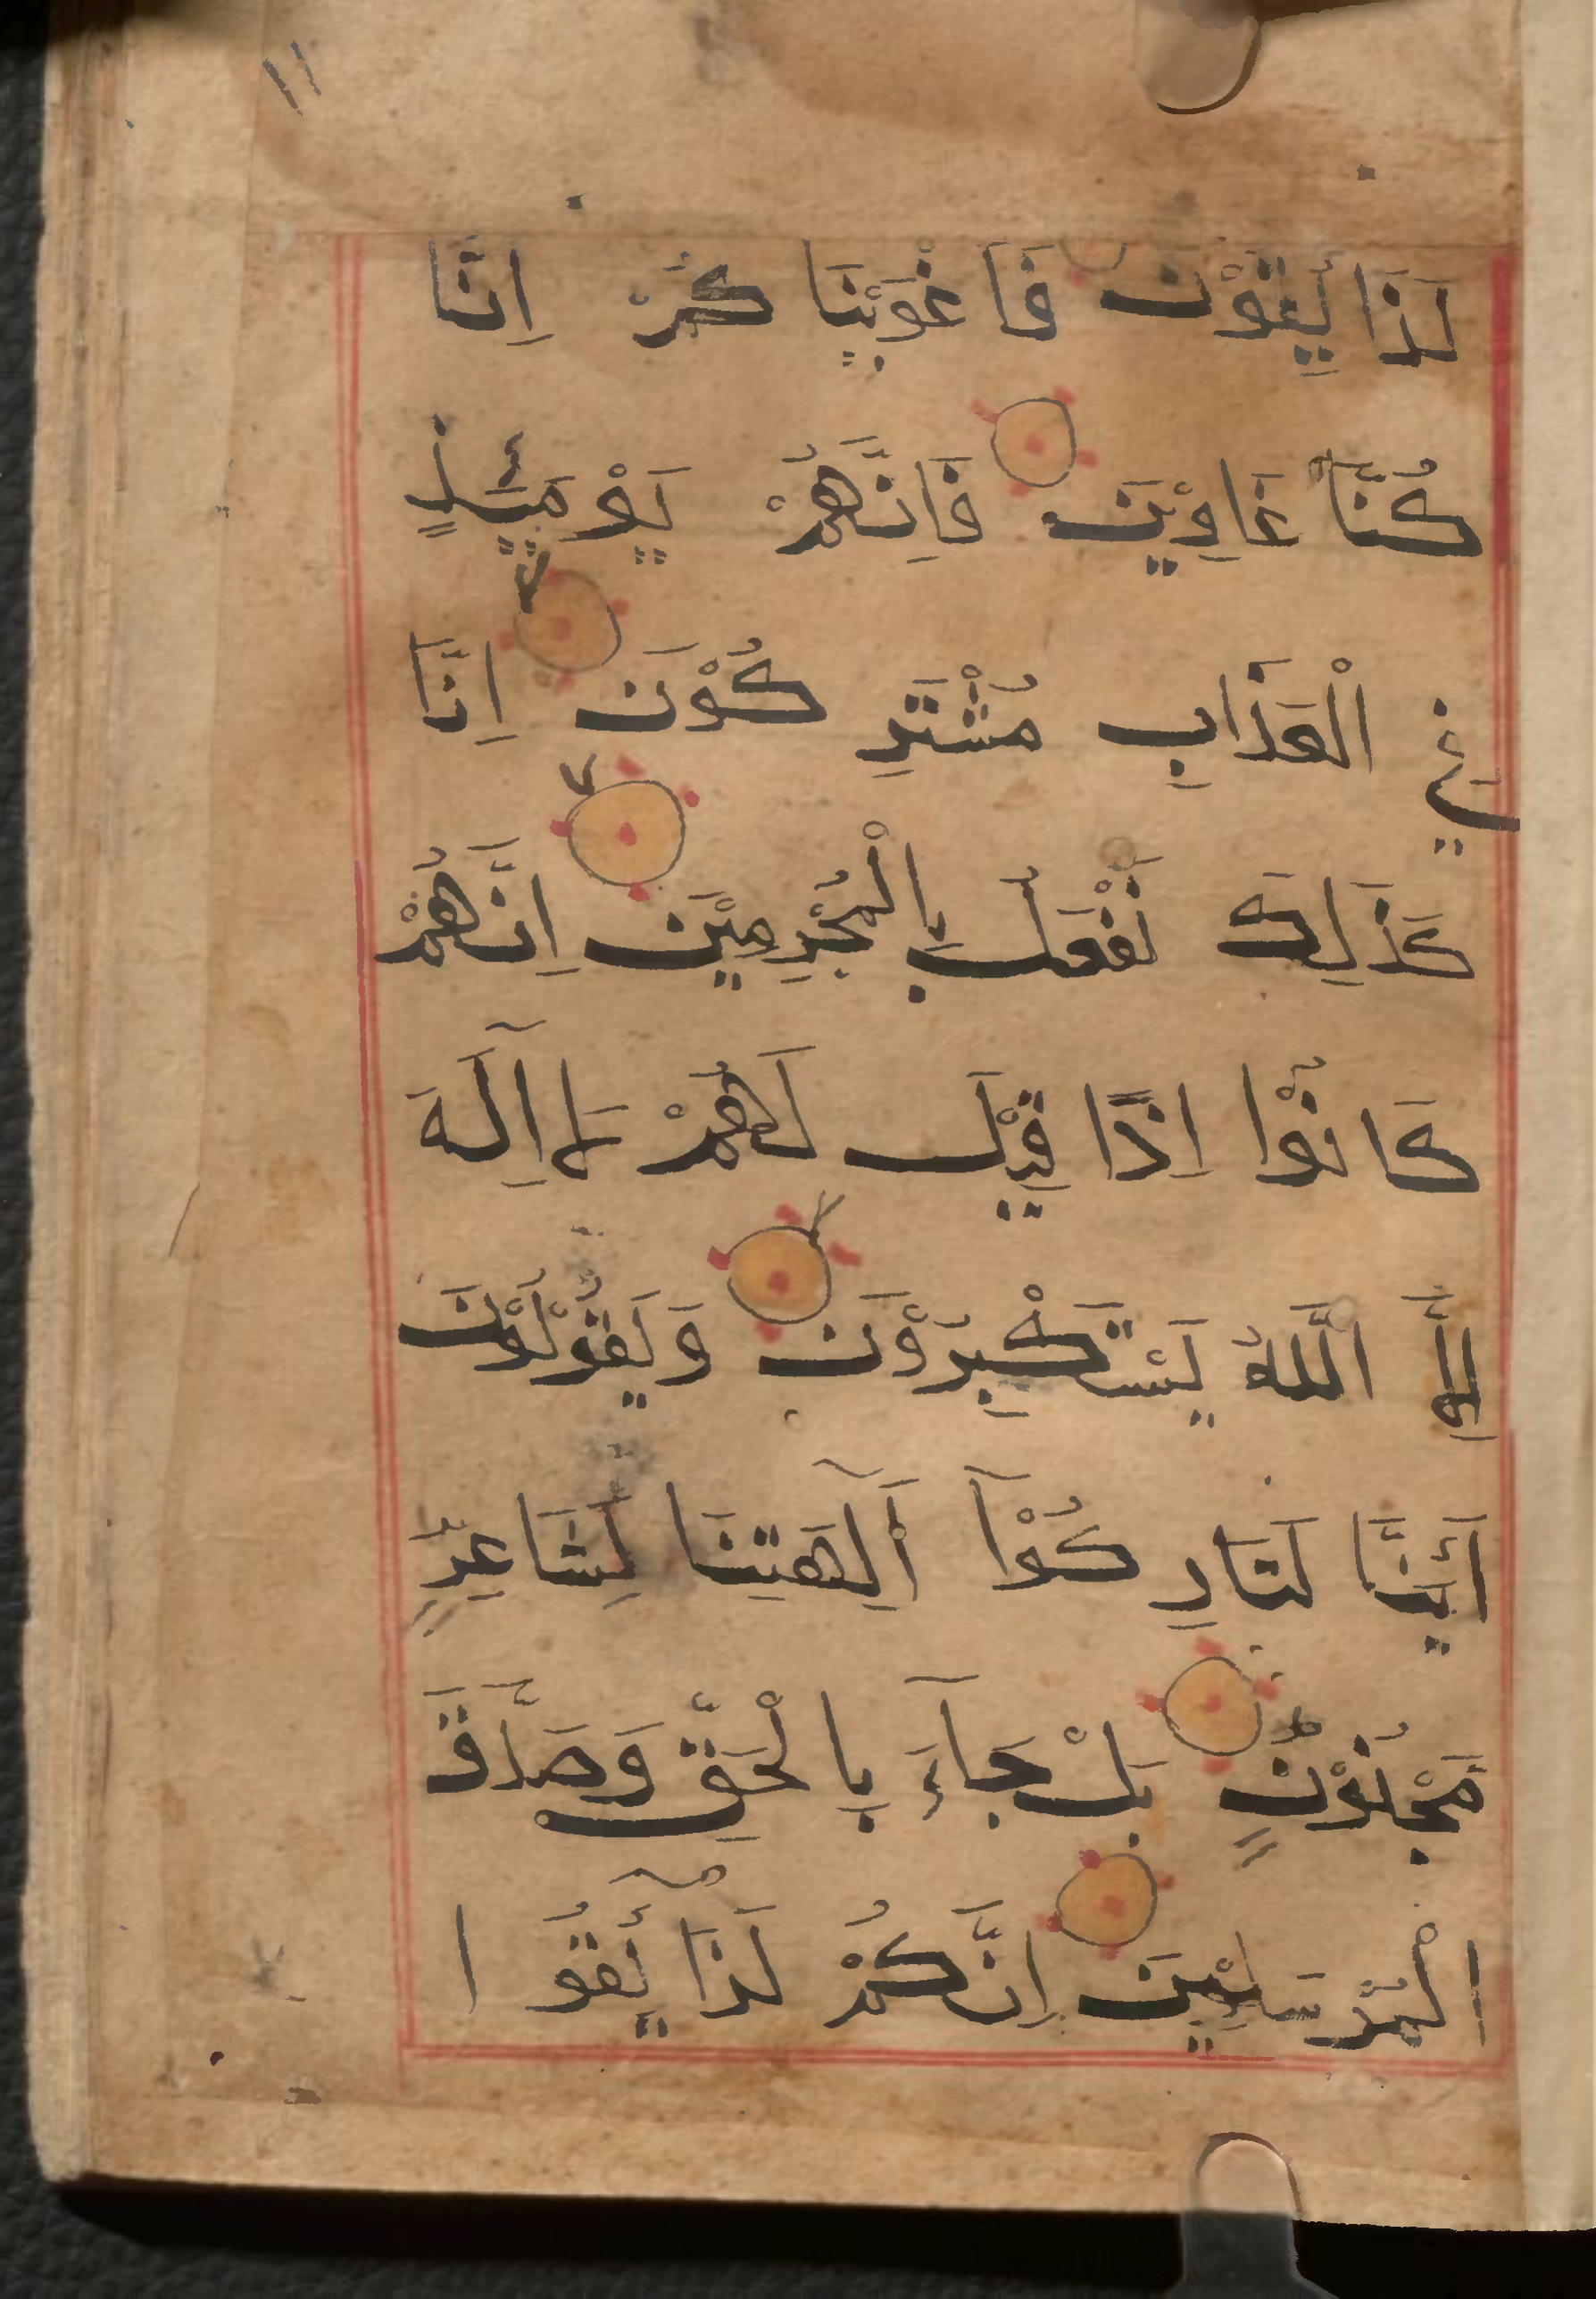 ١١
لَذَآئِقُوْنَ فَاَغْوَيْنَا كُمْ اِنَّا
كُنَّا غَاوِيْنَ فَاِنَّهُمْ يَوْمَئِذٍ
فِي الْعَذَابِ مُشْتَرِ كُوْنَ اِنَّا
كَذٰلِكَ نَفْعَلُ بِالْمُجْرِمِيْنَ اِنَّهُمْ
كَانُوْا اِذَا قِيْلَ لَهُمْ لَا اِلٰهَ
اِلَّا اللّٰهُ يَسْتَكْبِرُوْنَ وَيَقُوْلُوْنَ
اَئِنَّا لَتَارِ كُوْآ اٰلِهَتِنَا لِشَاعِرٍ
مَجْنُوْنٍ بَلْ جَآءَ بِالْحَقِّ وَصَدَّقَ
الْمُرْسَلِيْنَ اِنَّكُمْ لَذَآئِقُوا